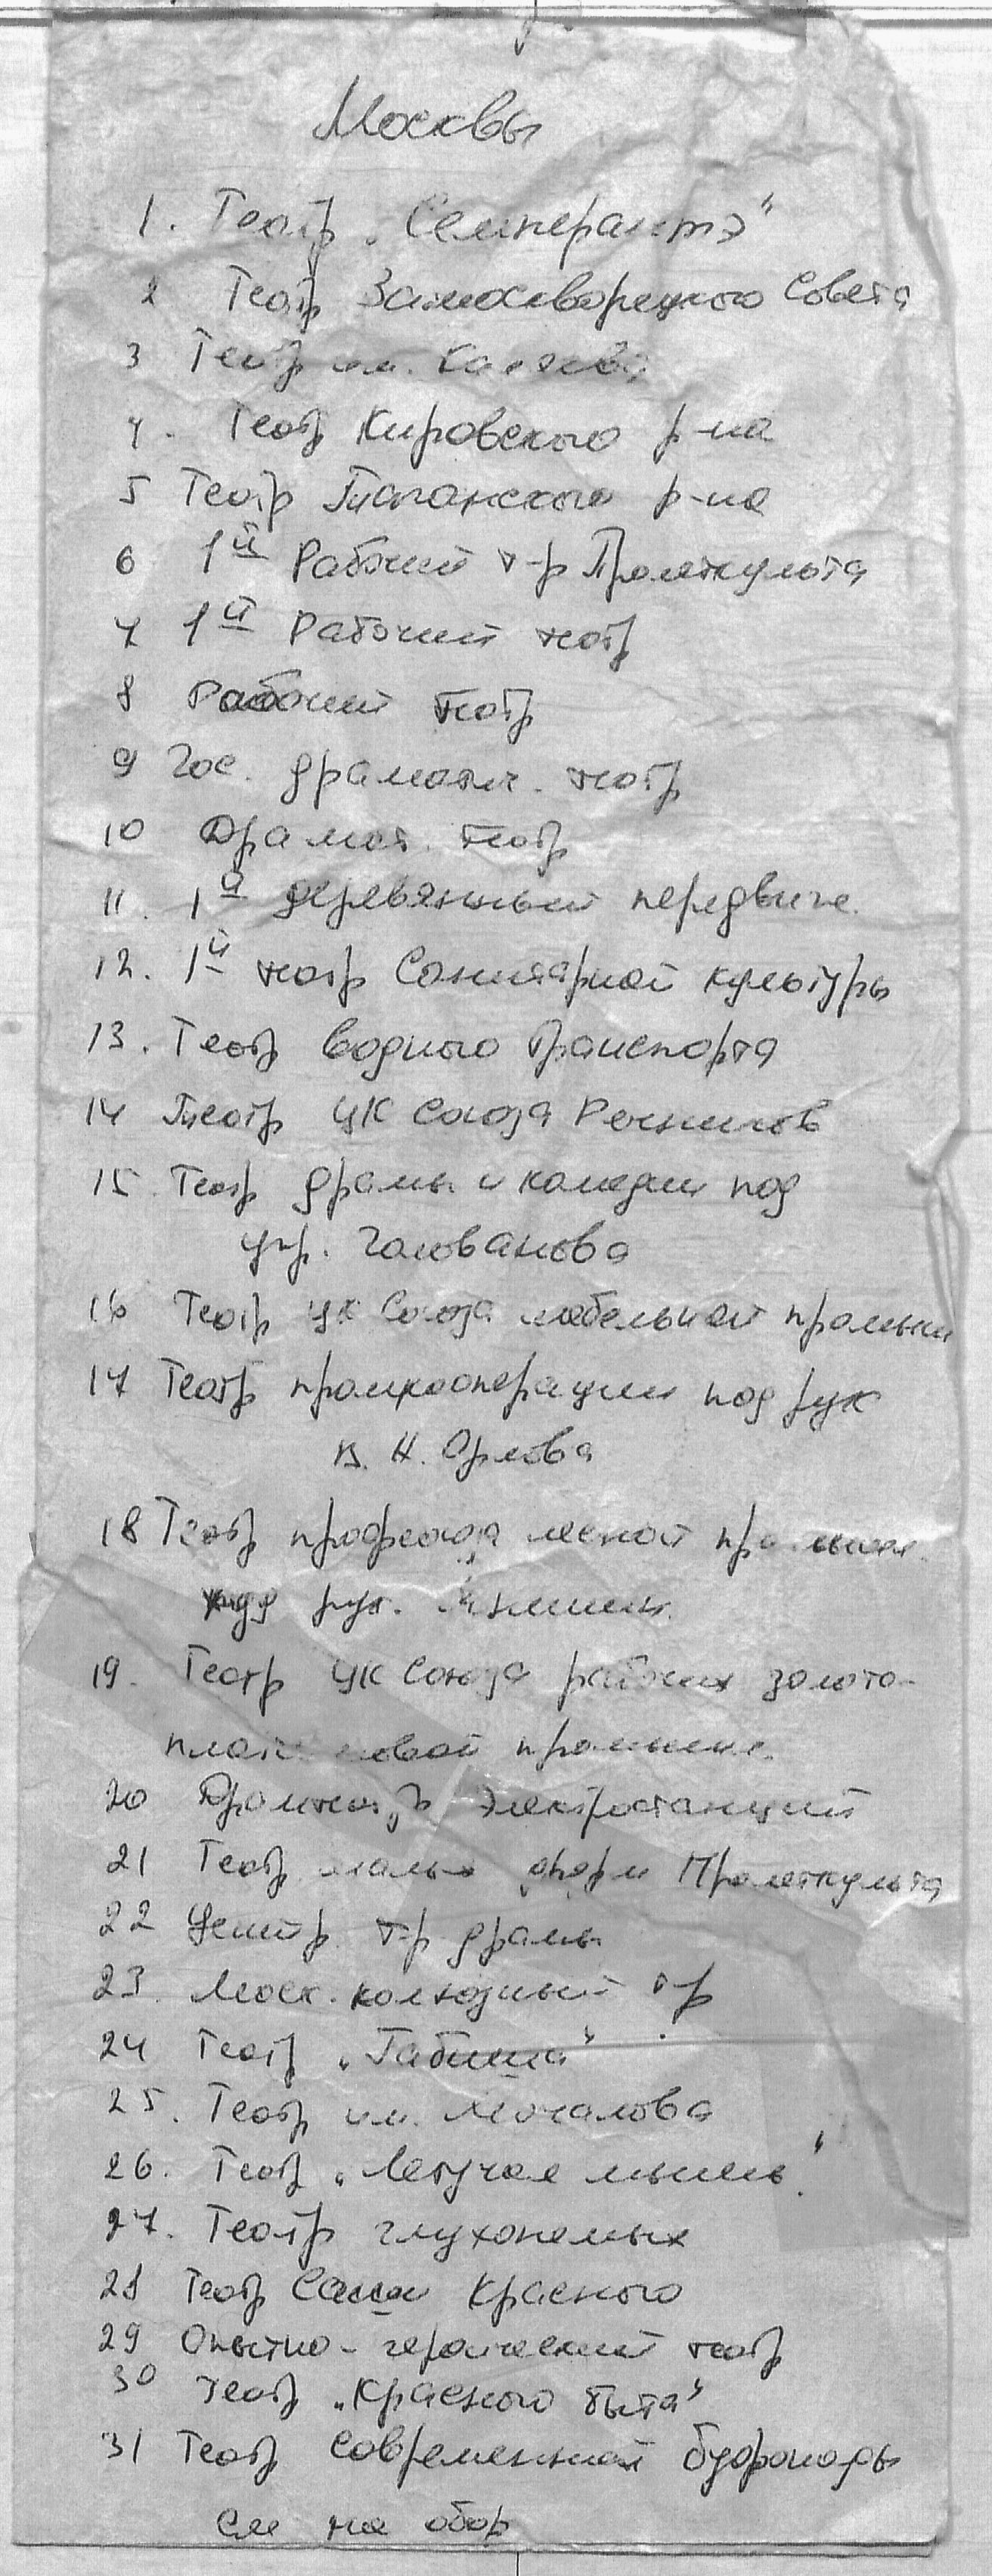 Москвы
1. Театр „Семперантэ"
2 Театр Замоскворецкого Совета
3 Театр им. Каляева
4. Театр Кировского р-на
5 Театр Таганского р-на
6 1й Рабочий т-р Пролеткульта
7 1й Рабочий театр
8 Рабочий театр
9 Гос. драматич. театр
10 Драмат. театр
11. 1й деревянный передвиж.
12. 1й театр Санитарной культуры
13. Театр водного транспорта
14 Театр ЦК Союза Речников
15 Театр драмы и комедии под
упр. Голованова
16 Театр ЦК Союза мебельной промыш
17 Театр промкооперации под рук
В. Н. Орлова
18 Театр профсоюза лесной промыш.
под рук.
19. Театр ЦК Союза рабочих золото-
платиновой промышл.
20 Драмтеатр Электростанций
21 Театр малых форм Пролеткульта
22 Центр. т-р драмы
23. Моск. колхозный т-р
24 Театр „Габима"
25. Театр им. Мочалова
26. Театр „Летучая мышь"
27. Театр глухонемых
28 Театр Саши Красного
29 Опытно-героический театр
30 Театр „Красного быта"
31 Театр Современной буффонады
См на обор